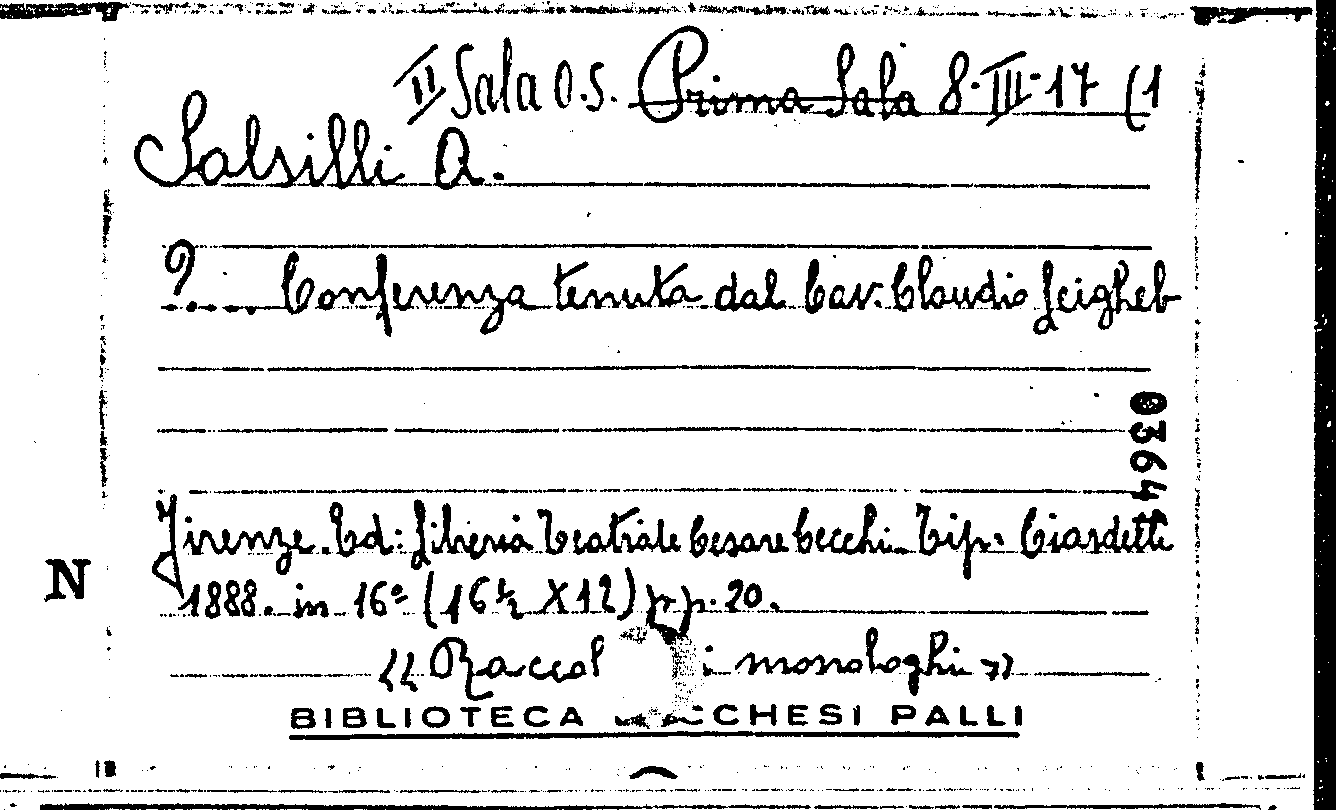 II Sala O.S. Prima Sala 8-III-17 (1
Salsilli A.
?.... Conferenza tenuta dal Cav. Claudio Leigheb
0364
Firenze. Ed: Libreria Teatrale Cesare Cecchi. Tip. Ciardetti
N
1888. in 16º (16½ X 12) pp. 20.
" Raccol i monologhi "
BIBLIOTECA CCHESI PALLI